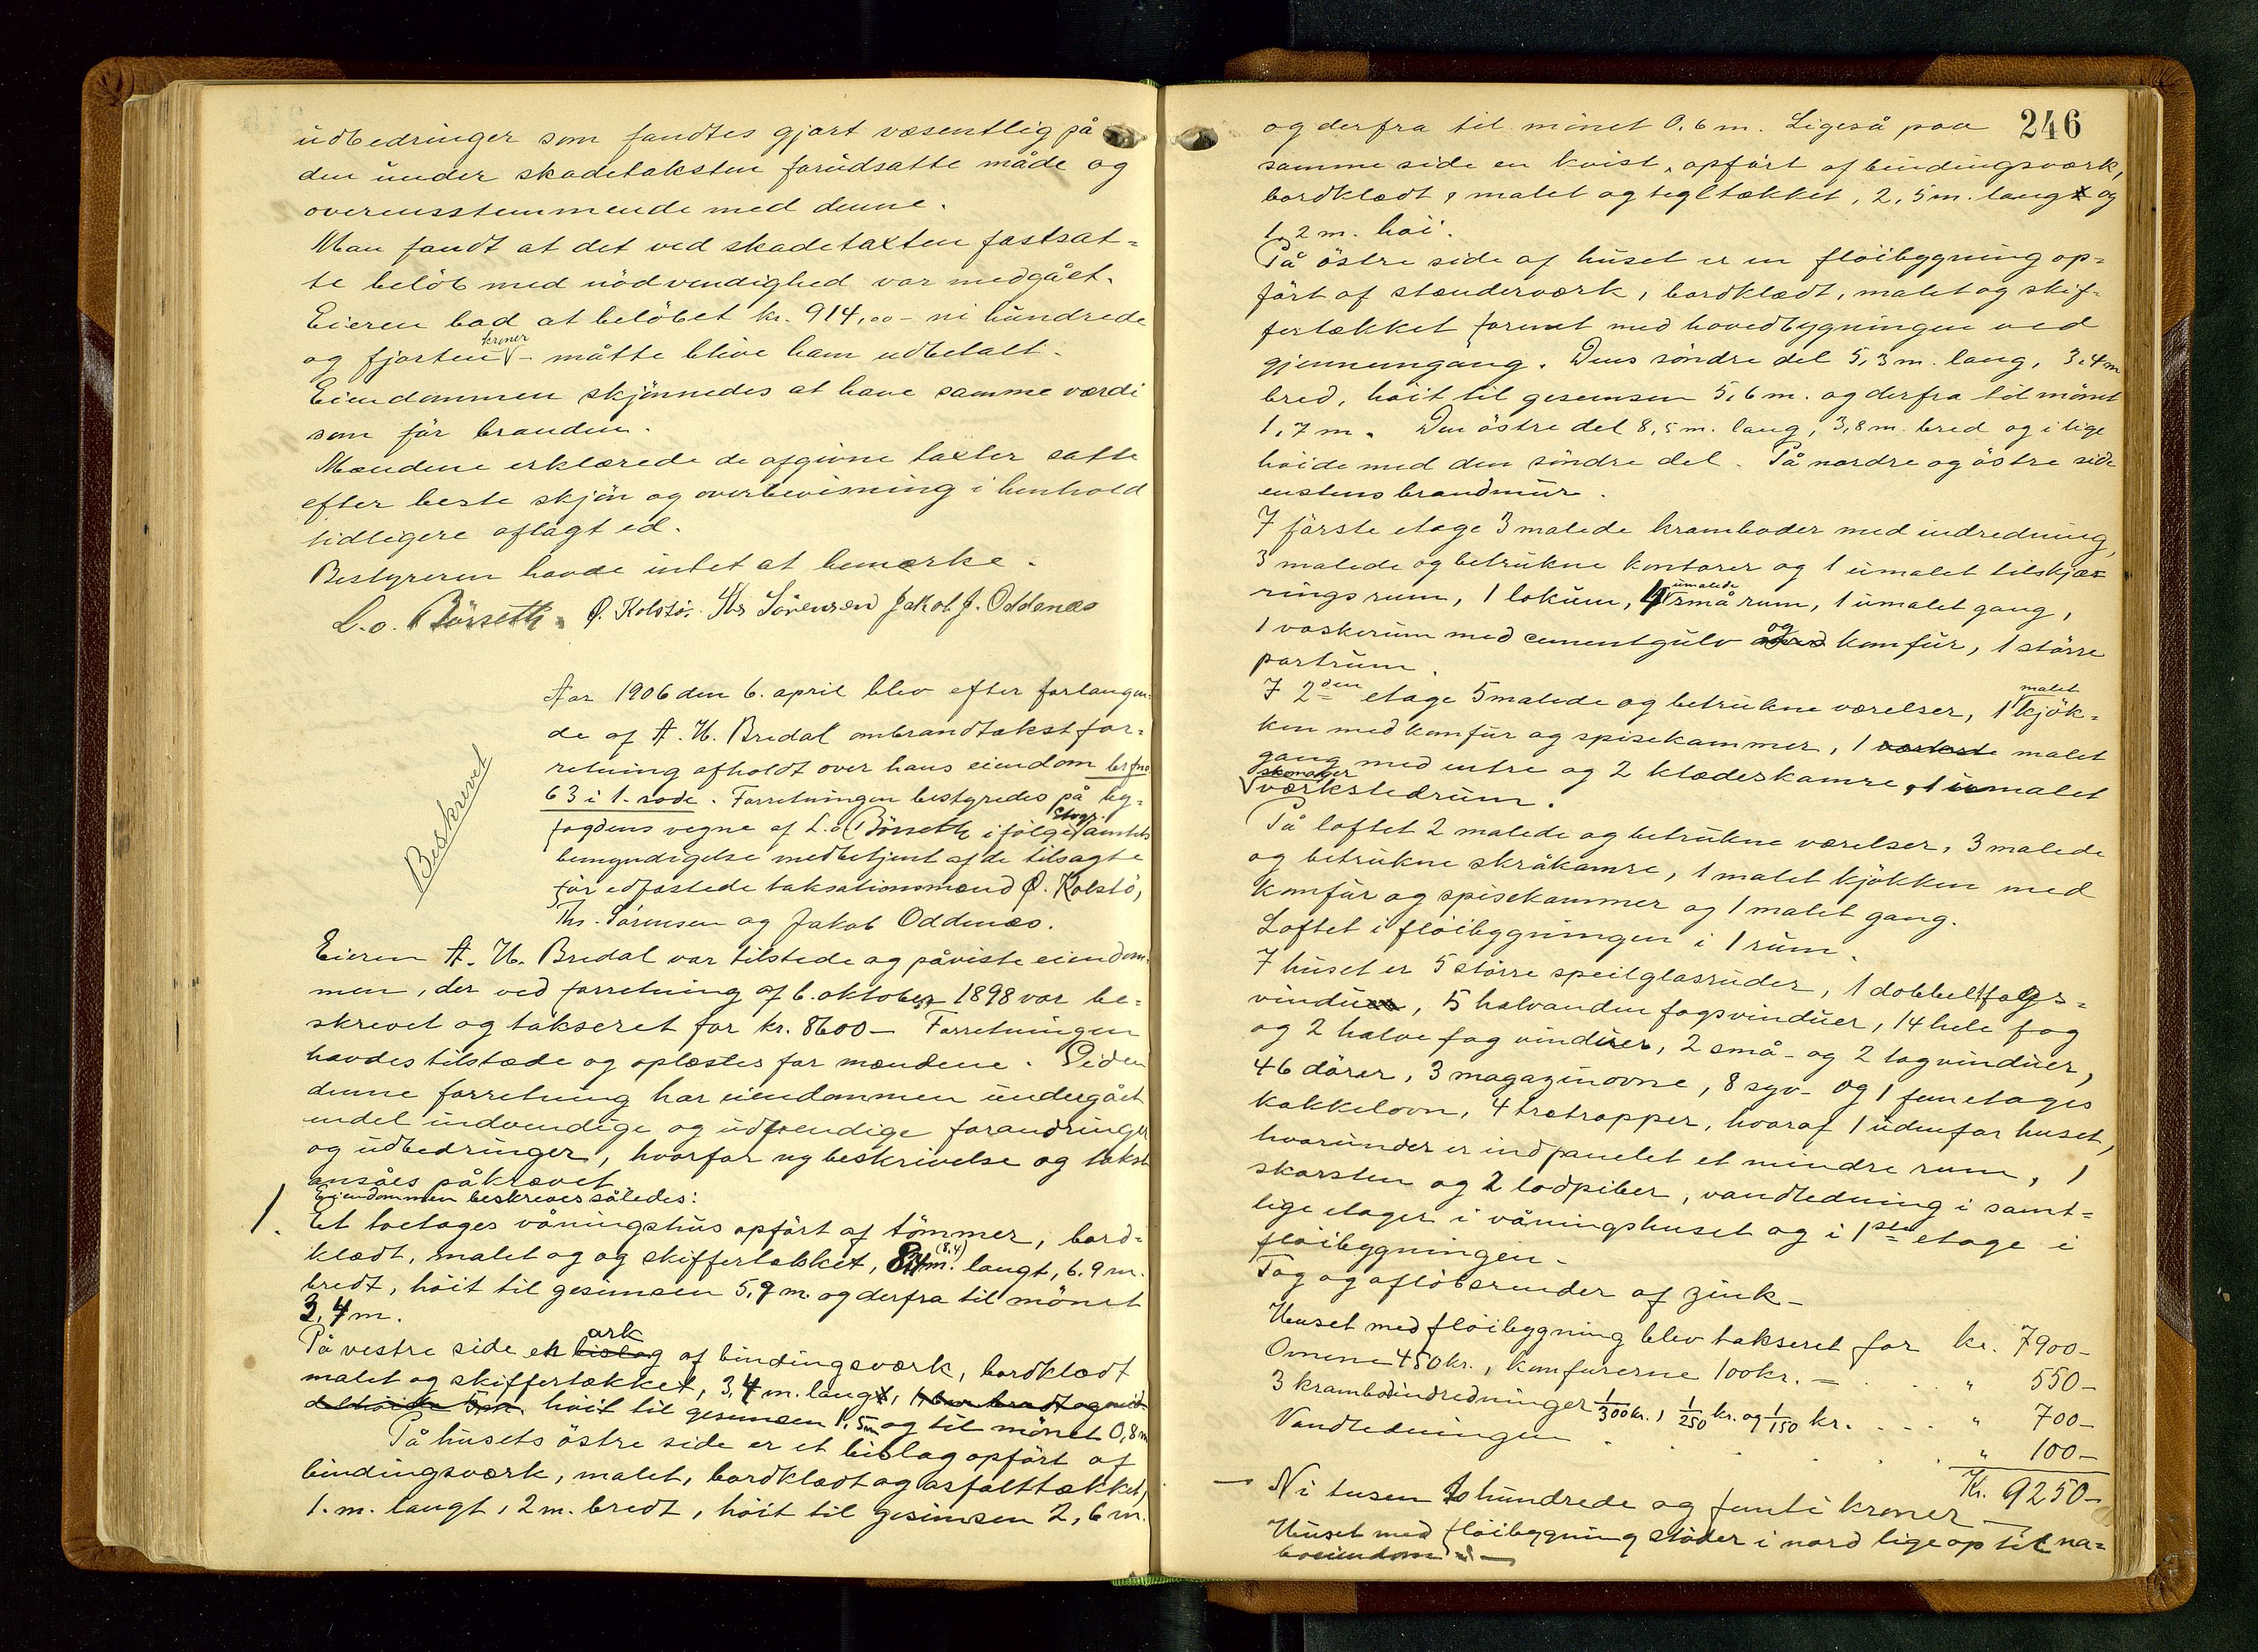 udbedringer som fandtes gjort væsentlig på
den under skadetaksten forudsatte måde og
overensstemmende med denne.
Man fandt at det ved skadetaxten fastsat-
te belöb med nödvendighed var medgået.
Eieren bad at belöbet kr. 914,00 - ni hundrede
og fjorten kroner - måtte blive ham udbetalt.
Eiendommen skjönnedes at have samme værdi
som för branden.
Mændene erklærede de afgivne taxter satte
efter beste skjön og overbevisning i henhold
tidligere aflagt ed.
Bestyreren havde intet at bemærke.
L. o. Börseth. O. Kolstö. Ths Sörensen Jakob J. Oddenæs
Aar 1906 den 6. april blev efter forlangen-
de af A. H. Bredal ombrandtakstfor-
retning afholdt over hans eiendom br fno
63 i 1. rode. Forretningen bestyredes på by-
fogdens vegne af L. o. Börseth ifölge Stvgr. amtets
bemyndigelse medbetjent af de tilsagte
för edfæstede taksationsmænd O. Kolstö,
Ths. Sörensen og Jakob Oddenæs.
Beskrevet
Eieren A. H. Bredal var tilstede og påviste eiendom-
men, der ved forretning af 6. oktober 1898 var be-
skrevet og takseret for kr. 8600 - Forretningen
havdes tilstæde og oplæstes for mændene. Siden
denne forretning har eiendommen undergået
endel indvendige og udvendige forandringer
og udbedringer, hvorfor ny beskrivelse og takst
ansåes påkrævet
Eiendommen beskrives således:
1. Et toetages våningshus opfört af tömmer, bord-
klædt, malet og og skiffertækket, 8,4 m. (8,4) langt, 6.9 m.
bredt, höit til gesimsen 5,9 m. og derfra til mönet
3,4 m.
På vestre side en bislag ark af bindingsværk, bordklædt
malet og skiffertækket, 3,4 m. langt,
höit til gesimsen 1,5 m og til mönet 0,8 m
På husets östre side er et bislag opfört af
bindingsværk, malet, bordklædt og asfalttækket,
1. m. langt, 2 m. bredt, höit til gesimsen 2,6 m.
246
og derfra til mönet 0,6 m. Ligeså paa
samme side en kvist, opfört af bindingsværk,
bordklædt, malet og tegltækket, 2,5 m. lang og
1,2 m. höi.
På östre side af huset er en flöibygning op-
fört af stænderværk, bordklædt, malet og skif-
fertækket forenet med hovedbygningen ved
gjennemgang. Dens söndre del 5,3 m. lang, 3,4 m
bred, höit til gesimsen 5,6 m. og derfra til mönet
1,7 m. Den östre del 8,5 m. lang, 3,8 m. bred og i lige
höide med den söndre del. På nordre og östre side
enstens brandmur.
I förste etage 3 malede kramboder med indredning,
3 malede og betrukne kontorer og 1 umalet tilskjæ-
rings rum, 1 lokum, 4 umalede små rum, 1 umalet gang,
1 vaskerum med cementgulv og komfur, 1 större
portrum.
I 2den etage 5 malede og betrukne værelser, 1 malet kjök-
ken med komfur og spisekammer, 1 malet
gang med entre og 2 klædeskamre, 1 umalet
skomager værkstedrum.
På loftet 2 malede og betrukne værelser, 3 malede
og betrukne skråkamre, 1 malet kjökken med
komfur og spisekammer og 1 malet gang.
Loftet i flöibygningen i 1 rum.
I huset er 5 större speilglasruder, 1 dobbeltfags-
vindu, 5 halvanden fagsvinduer, 14 hele fag
og 2 halve fag vinduer, 2 små- og 2 tagvinduer,
46 dörer, 3 magazinovne, 8 syv- og 1 femetages
kakkelovn, 4 trætrapper, hvoraf 1 udenfor huset,
hvorunder er indpanelet et mindre rum, 1
skorsten og 2 lodpiber, vandledning i samt-
lige etager i våningshuset og i 1ste etage i
flöibygningen.
Tag og aflöbsrender af zink -
Huset med flöibygning blev takseret for kr. 7900-
Ovnene 450 kr., komfurerne 100 kr. - . . . " 550-
3 krambodindredninger 1/300 kr., 1/250 kr. og 1/150 kr. . . . " 700-
Vandledningen . . . . . " 100-
Kr. 9250-
- Ni tusen to hundrede og femti kroner -
Huset med flöibygning stöder i nord lige op til na-
boeiendom -